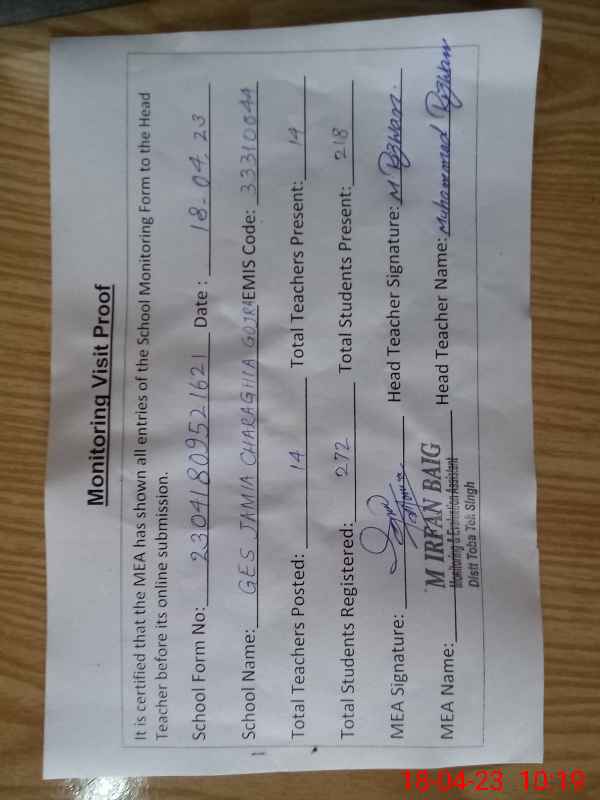 Monitoring Visit Proof
It is certified that the MEA has shown all entries of the School Monitoring Form to the Head
Teacher before its online submission.
School Form No: 23041809521621 Date : 18-04.23
School Name: GES JAMIA CHARAGHIA GOJRA EMIS Code: 33310044
Total Teachers Posted: 14 Total Teachers Present: 14
Total Students Registered: 272 Total Students Present: 218
MEA Signature: Head Teacher Signature: M Rizwan.
MEA Name: M IRFAN BAIG Head Teacher Name: Muhammad Rizwan
Monitoring & Evaluation Assistant
Distt Toba Tek Singh
18-04-23 10:19